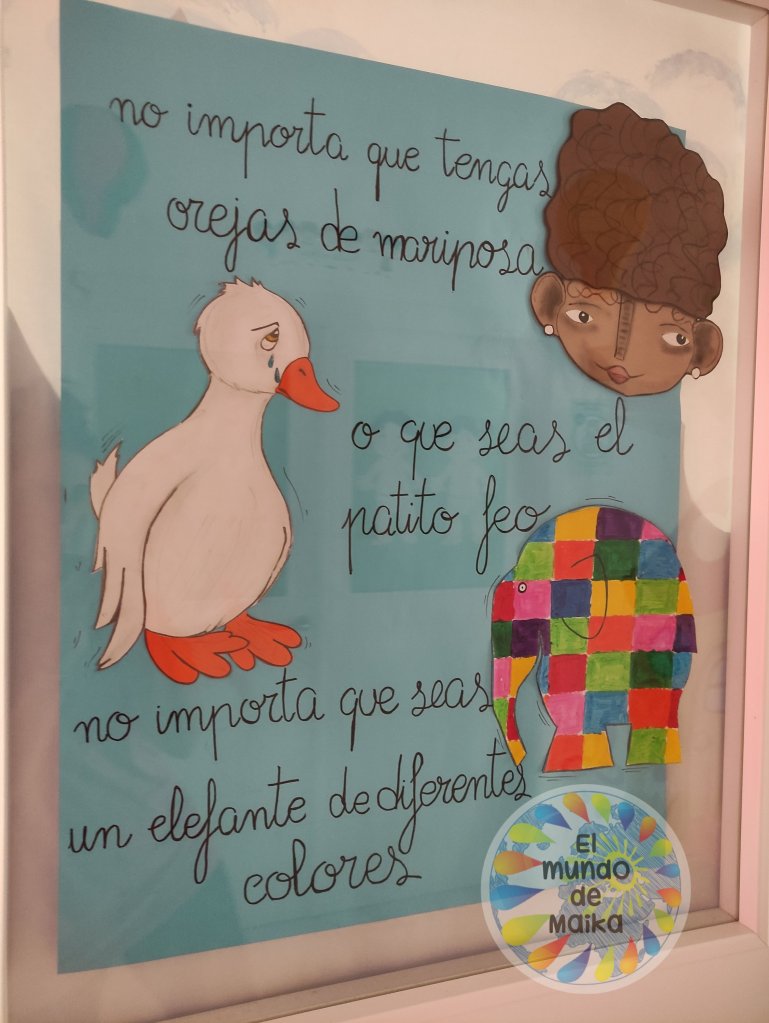 no importa que tengas
orejas de mariposa
o que seas el
patito feo
no importa que seas
un elefante de diferentes
colores
El
mundo
de
Maika